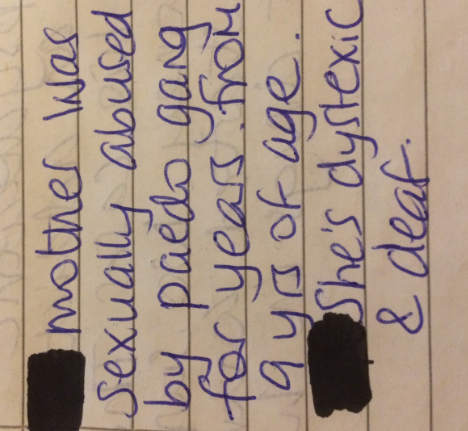 mother was
sexually abused
by paedo gang
for years. from
9 yrs of age.
She's dyslexic
& deaf.